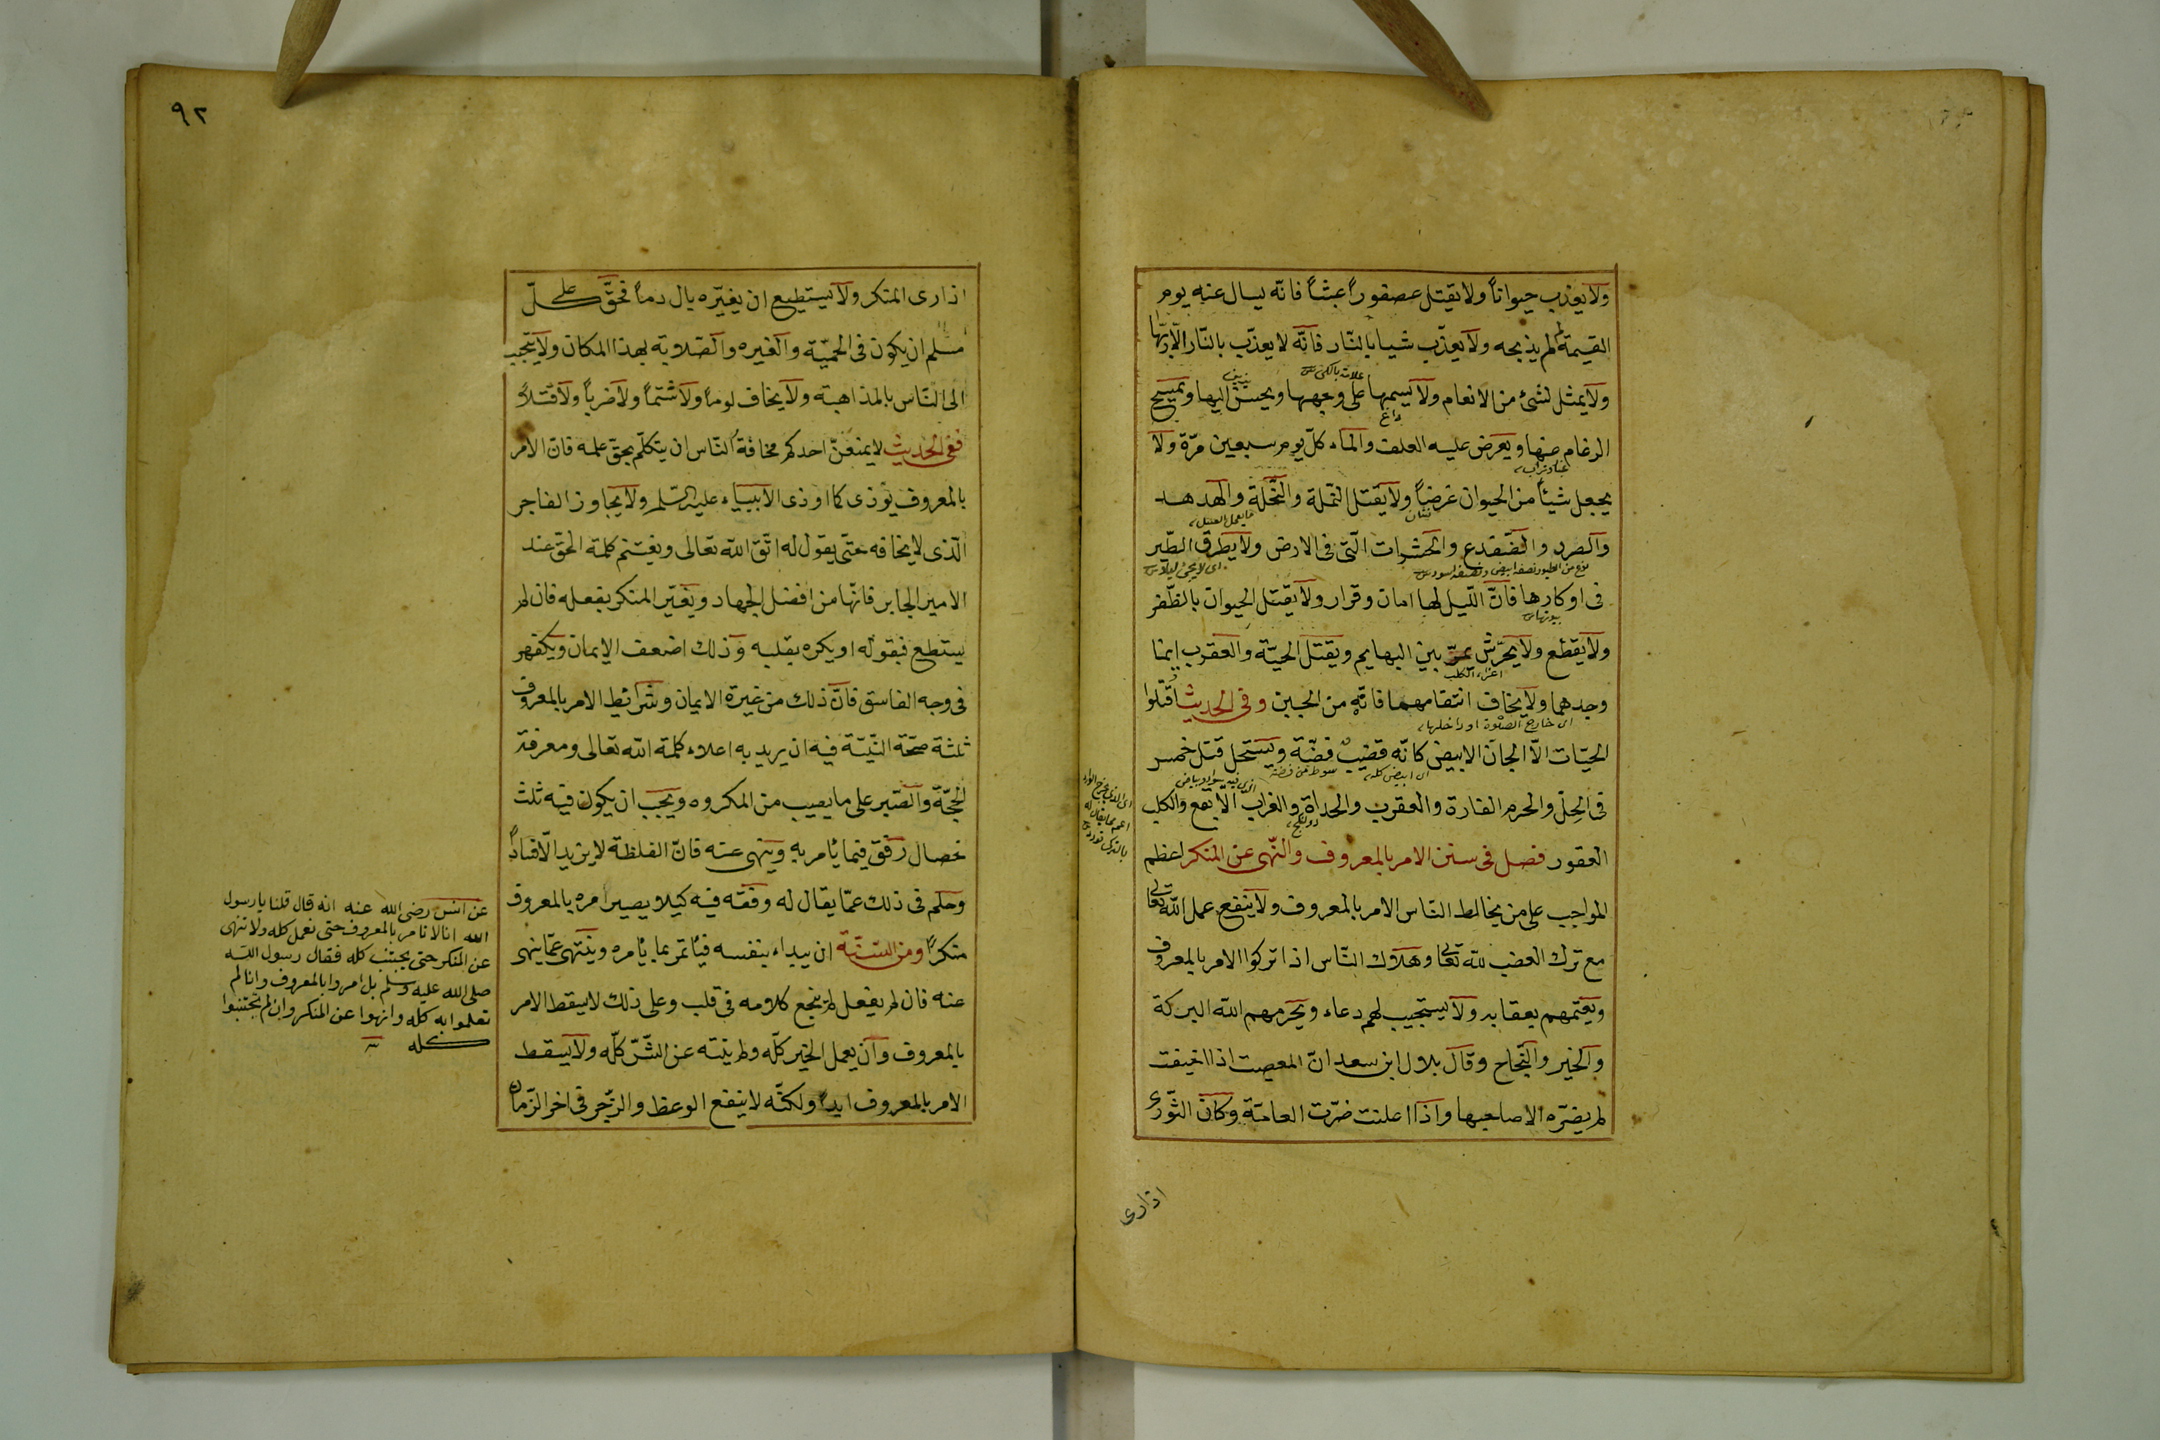 ولا يعذب حيوانا ولا يقتل عصفورا عبثا فانّه يسال عنه يوم
القيمة لم يذبحه ولا يعذّب شيا بالنّار فانّه لا يعذّب بالنّار الّا ربّها
ولا يمثل لشئ من الانعام ولا يسمها على وجهها ويحسن اليها ويمسح
الرغام عنها ويعرض عليه العلف والماء كلّ يوم سبعين مرّة ولا
يجعل شيئاً من الحيوان غرضاً ولا يقتل النّملة والنّحلة والهدهد
والصرد والضّفدع والحشرات الّتى فى الارض ولا يطرق الطّير
فى اوكارها فانّ اللّيل لها امان وقرار ولا يقتل الحيوان بالظّفر
ولا يقطع ولا يحرّش بين البهايم ويقتل الحيّة والعقرب اينما
وجدهما ولا يخاف انتقامهما فانّه من الجبن وفى الحديث اقتلوا
الحيّات الّا الجانّ الابيض كانّه قضيب فضّة ويستحل قتل خمس
فى الحِلّ والحرم الفارة والعقرب والحداة والغراب الابقع والكلب
العقور فصل فى سنن الامر بالمعروف والنّهى عن المنكر اعظم
المواجب على من يخالط النّاس الامر بالمعروف ولا ينفع عمل الله تعالى
مع ترك الغضب لله تعالى وهلاك النّاس اذا تركوا الامر بالمعروف
ويعمّهم بعقابه ولا يستجيب لهم دعاء ويحرمهم الله البركة
والخير والنّجاح وقال بلال ابن سعد انّ المعصيت اذا اخيفت
لم يضرّه الا صاحبها واذا اعلنت ضرّت العامّة وكان الثّورى
اذا راى
علامة
داغ
نشان
ما يعمل العسل
نوع من الطيور نصفه ابيض ونصفه اسود
اى لا يجئ ليلا
بيوتها
اى خارج الصلوة او داخلها
اى ابيض كله
سوط من فضة
الذى فيه سواد وبياض
٩٢
اذا راى المنكر ولا يستطيع ان يغيّره بال دماً فحقّ على كلّ
مسلم ان يكون فى الحميّة والغيره والصّلابة بهذا المكان ولا يتحبب
الى النّاس بالمذاهبة ولا يخاف لوماً ولا شتماً ولا ضرباً ولا قتلاً
ففى الحديث لا يمنعنّ احدكم مخافة النّاس ان يتكلّم بحق علمه فانّ الامر
بالمعروف يؤذى كما اوذى الانبياء عليه السّلم ولا يجاوز الفاجر
الّذى لا يخافه حتّى يقول له اتّق الله تعالى ويغتنم كلمة الحقّ عند
الامير الجابر فانّها من افضل الجهاد ويغيّر المنكر بفعله فان لم
يستطع فبقوله او يكره بقلبه وذلك اضعف الايمان ويكفهر
فى وجه الفاسق فانّ ذلك من غيرة الايمان وشرائط الامر بالمعروف
ثلثة صحّة النّيّة فيه ان يريد به اعلاء كلمة الله تعالى ومعرفة
الحجّة والصّبر على ما يصيب من المكروه ويجب ان يكون فيه ثلث
خصال رفق فيما يامر به وينهى عنه فانّ الغلظة لا يزيد الّا فسادا
وحلم فى ذلك عمّا يقال له وفقه فيه كيلا يصير امره بالمعروف
منكراً ومن السّنّة ان يبداء بنفسه فياتمر بما يامره وينتهى عمّا ينهى
عنه فان لم يفعل لم ينجع كلامه فى قلب وعلى ذلك لا يسقط الامر
بالمعروف وان يعمل الخير كلّه ولم ينته عن الشّرّ كلّه ولا يسقط
الامر بالمعروف ابداً ولكنّه لا ينفع الوعظ والزّجر فى اخر الزّمان
عن انس رضى الله عنه انه قال قلنا يا رسول
الله انا لا نامر بالمعروف حتى نعمل كله ولا ننهى
عن المنكر حتى يجتنب كله فقال رسول الله
صلى الله عليه وسلم بل امروا بالمعروف وان لم
تعلموا به كله وانهوا عن المنكر وان لم تجتنبوا
كله